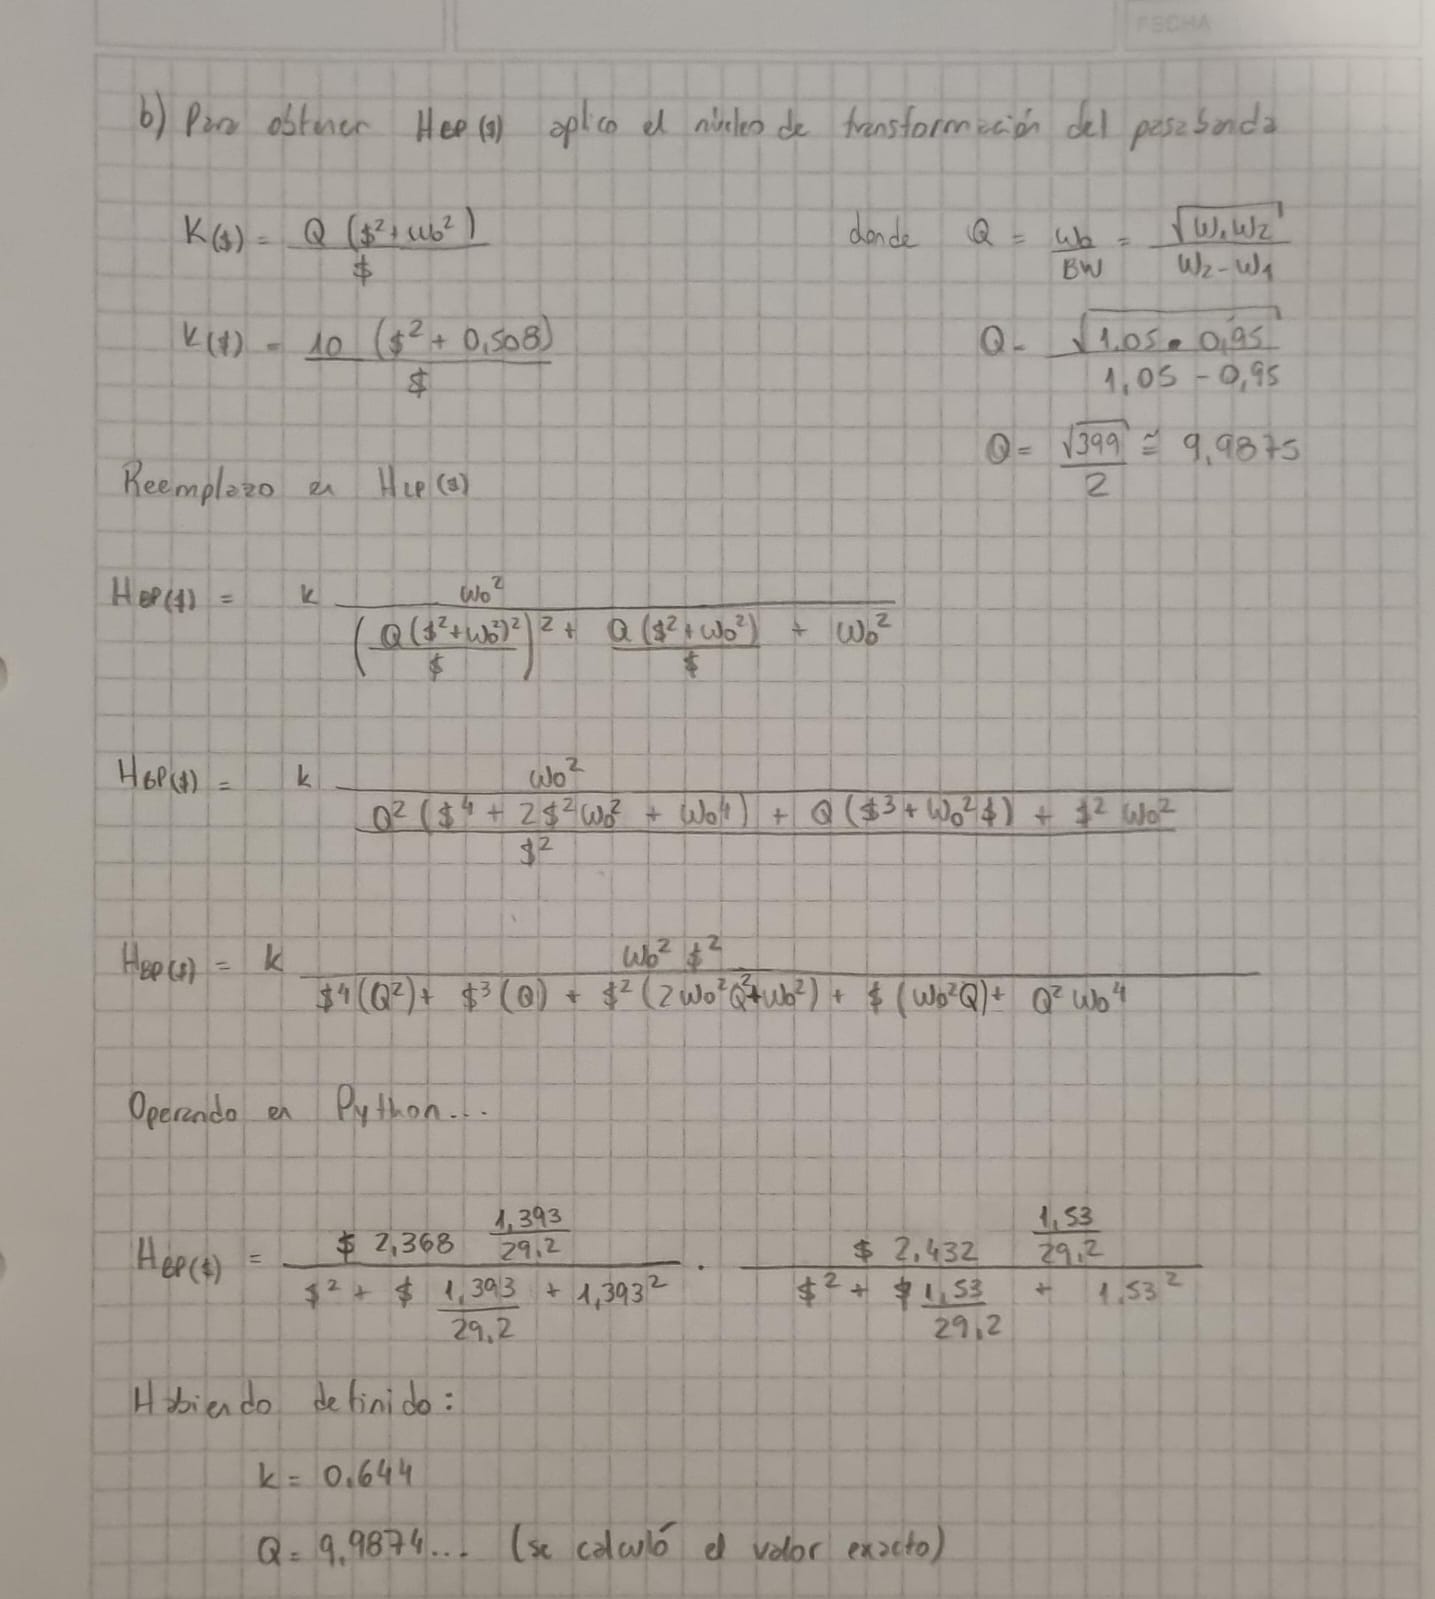 FECHA
b) Para obtener HBP($) aplico el núcleo de transformación del pasabanda
K($) = Q ($² + ω0²) / $ donde Q = ω0 / BW = √(ω1 ω2) / (ω2 - ω1)
K($) = 10 ($² + 0,508) / $ Q = √(1,05 • 0,95) / (1,05 - 0,95)
Q = √399 / 2 ≅ 9,9875
Reemplazo en HLP($)
HBP($) = k ω0² / ((Q ($² + ω0²)² / $)² + Q ($² + ω0²) / $ + ω0²)
HBP($) = k ω0² / ((Q² ($⁴ + 2$²ω0² + ω0⁴) + Q ($³ + ω0²$) + $² ω0²) / $²)
HBP($) = k ω0² $² / ($⁴(Q²) + $³(Q) + $²(2ω0²Q² + ω0²) + $ (ω0²Q) + Q² ω0⁴)
Operando en Python...
HBP($) = ($ 2,368 1,393/29,2) / ($² + $ 1,393/29,2 + 1,393²) . ($ 2,432 1,53/29,2) / ($² + $ 1,53/29,2 + 1,53²)
Habiendo definido:
k = 0,644
Q = 9,9874... (se calculó el valor exacto)